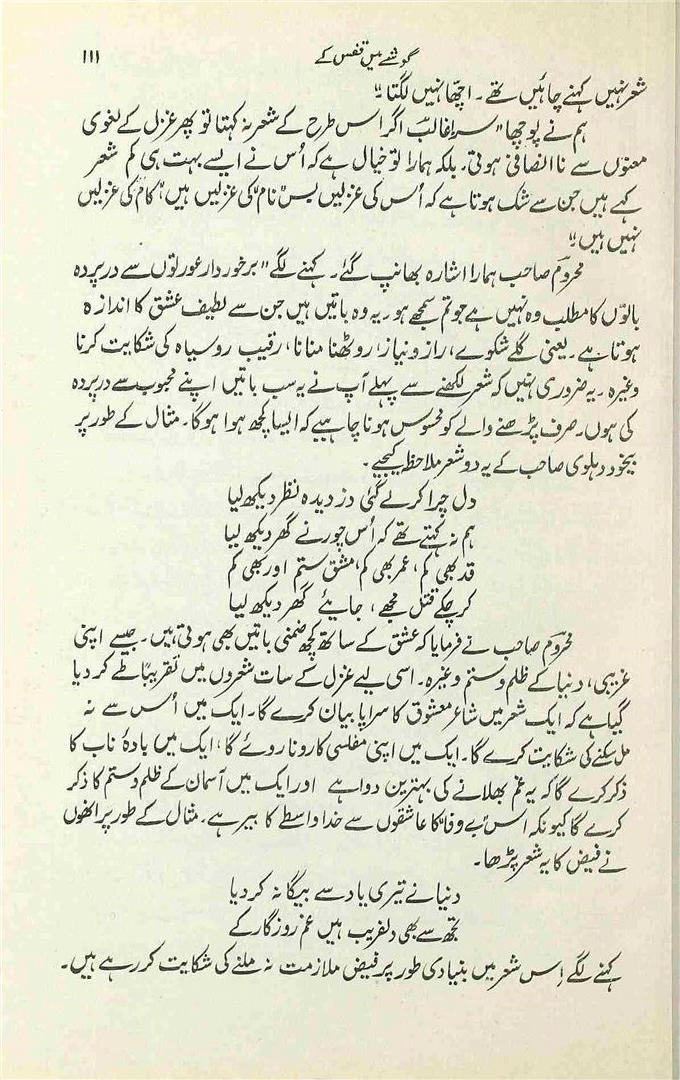 گوشے میں قفس کے ۱۱۱
شعر نہیں کہنے چاہئیں تھے۔ اچھا نہیں لگتا"
ہم نے پوچھا "سر! غالبؔ اگر اس طرح کے شعر نہ کہتا تو پھر غزل کے لغوی
معنوں سے ناانصافی ہوتی۔ بلکہ ہمارا تو خیال ہے کہ اُس نے ایسے بہت ہی کم شعر
کہے ہیں جن سے شک ہوتا ہے کہ اُس کی غزلیں بس "نام" کی غزلیں ہیں، "کام" کی غزلیں
نہیں ہیں"
محرومؔ صاحب ہمارا اشارہ بھانپ گئے۔ کہنے لگے "برخوردار عورتوں سے درپردہ
باتوں کا مطلب وہ نہیں ہے جو تم سمجھے ہو۔ یہ وہ باتیں ہیں جن سے لطیف عشق کا اندازہ
ہوتا ہے۔ یعنی گلے شکوے، راز و نیاز، روٹھنا منانا، رقیب روسیاہ کی شکایت کرنا
وغیرہ۔ یہ ضروری نہیں کہ شعر لکھنے سے پہلے آپ نے یہ سب باتیں اپنے محبوب سے درپردہ
کی ہوں۔ صرف پڑھنے والے کو محسوس ہونا چاہیے کہ ایسا کچھ ہوا ہوگا۔ مثال کے طور پر
بیخود دہلوی صاحب کے یہ دو شعر ملاحظہ کیجیے۔
دل چرا کر لے گئی دزدیدہ نظر دیکھ لیا
ہم نہ کہتے تھے کہ اُس چور نے گھر دیکھ لیا
قد بھی کم، عمر بھی کم، مشق ستم اور بھی کم
کر چکے قتل مجھے، جایئے گھر دیکھ لیا
محرومؔ صاحب نے فرمایا کہ عشق کے ساتھ کچھ ضمنی باتیں بھی ہوتی ہیں۔ جیسے اپنی
غریبی، دنیا کے ظلم و ستم وغیرہ۔ اسی لیے غزل کے سات شعروں میں تقریباً طے کر دیا
گیا ہے کہ ایک شعر میں شاعر معشوق کا سراپا بیان کرے گا۔ ایک میں اُس سے نہ
مل سکنے کی شکایت کرے گا۔ ایک میں اپنی مفلسی کا رونا روئے گا، ایک میں بادۂ ناب کا
ذکر کرے گا کہ یہ غم بھلانے کی بہترین دوا ہے اور ایک میں آسمان کے ظلم و ستم کا ذکر
کرے گا کیونکہ اس "بے وفا" کا عاشقوں سے خدا واسطے کا بیر ہے۔ مثال کے طور پر انھوں
نے فیض کا یہ شعر پڑھا۔
دنیا نے تیری یاد سے بیگانہ کر دیا
تجھ سے بھی دلفریب ہیں غم روزگار کے
کہنے لگے اِس شعر میں بنیادی طور پر فیض ملازمت نہ ملنے کی شکایت کر رہے ہیں۔